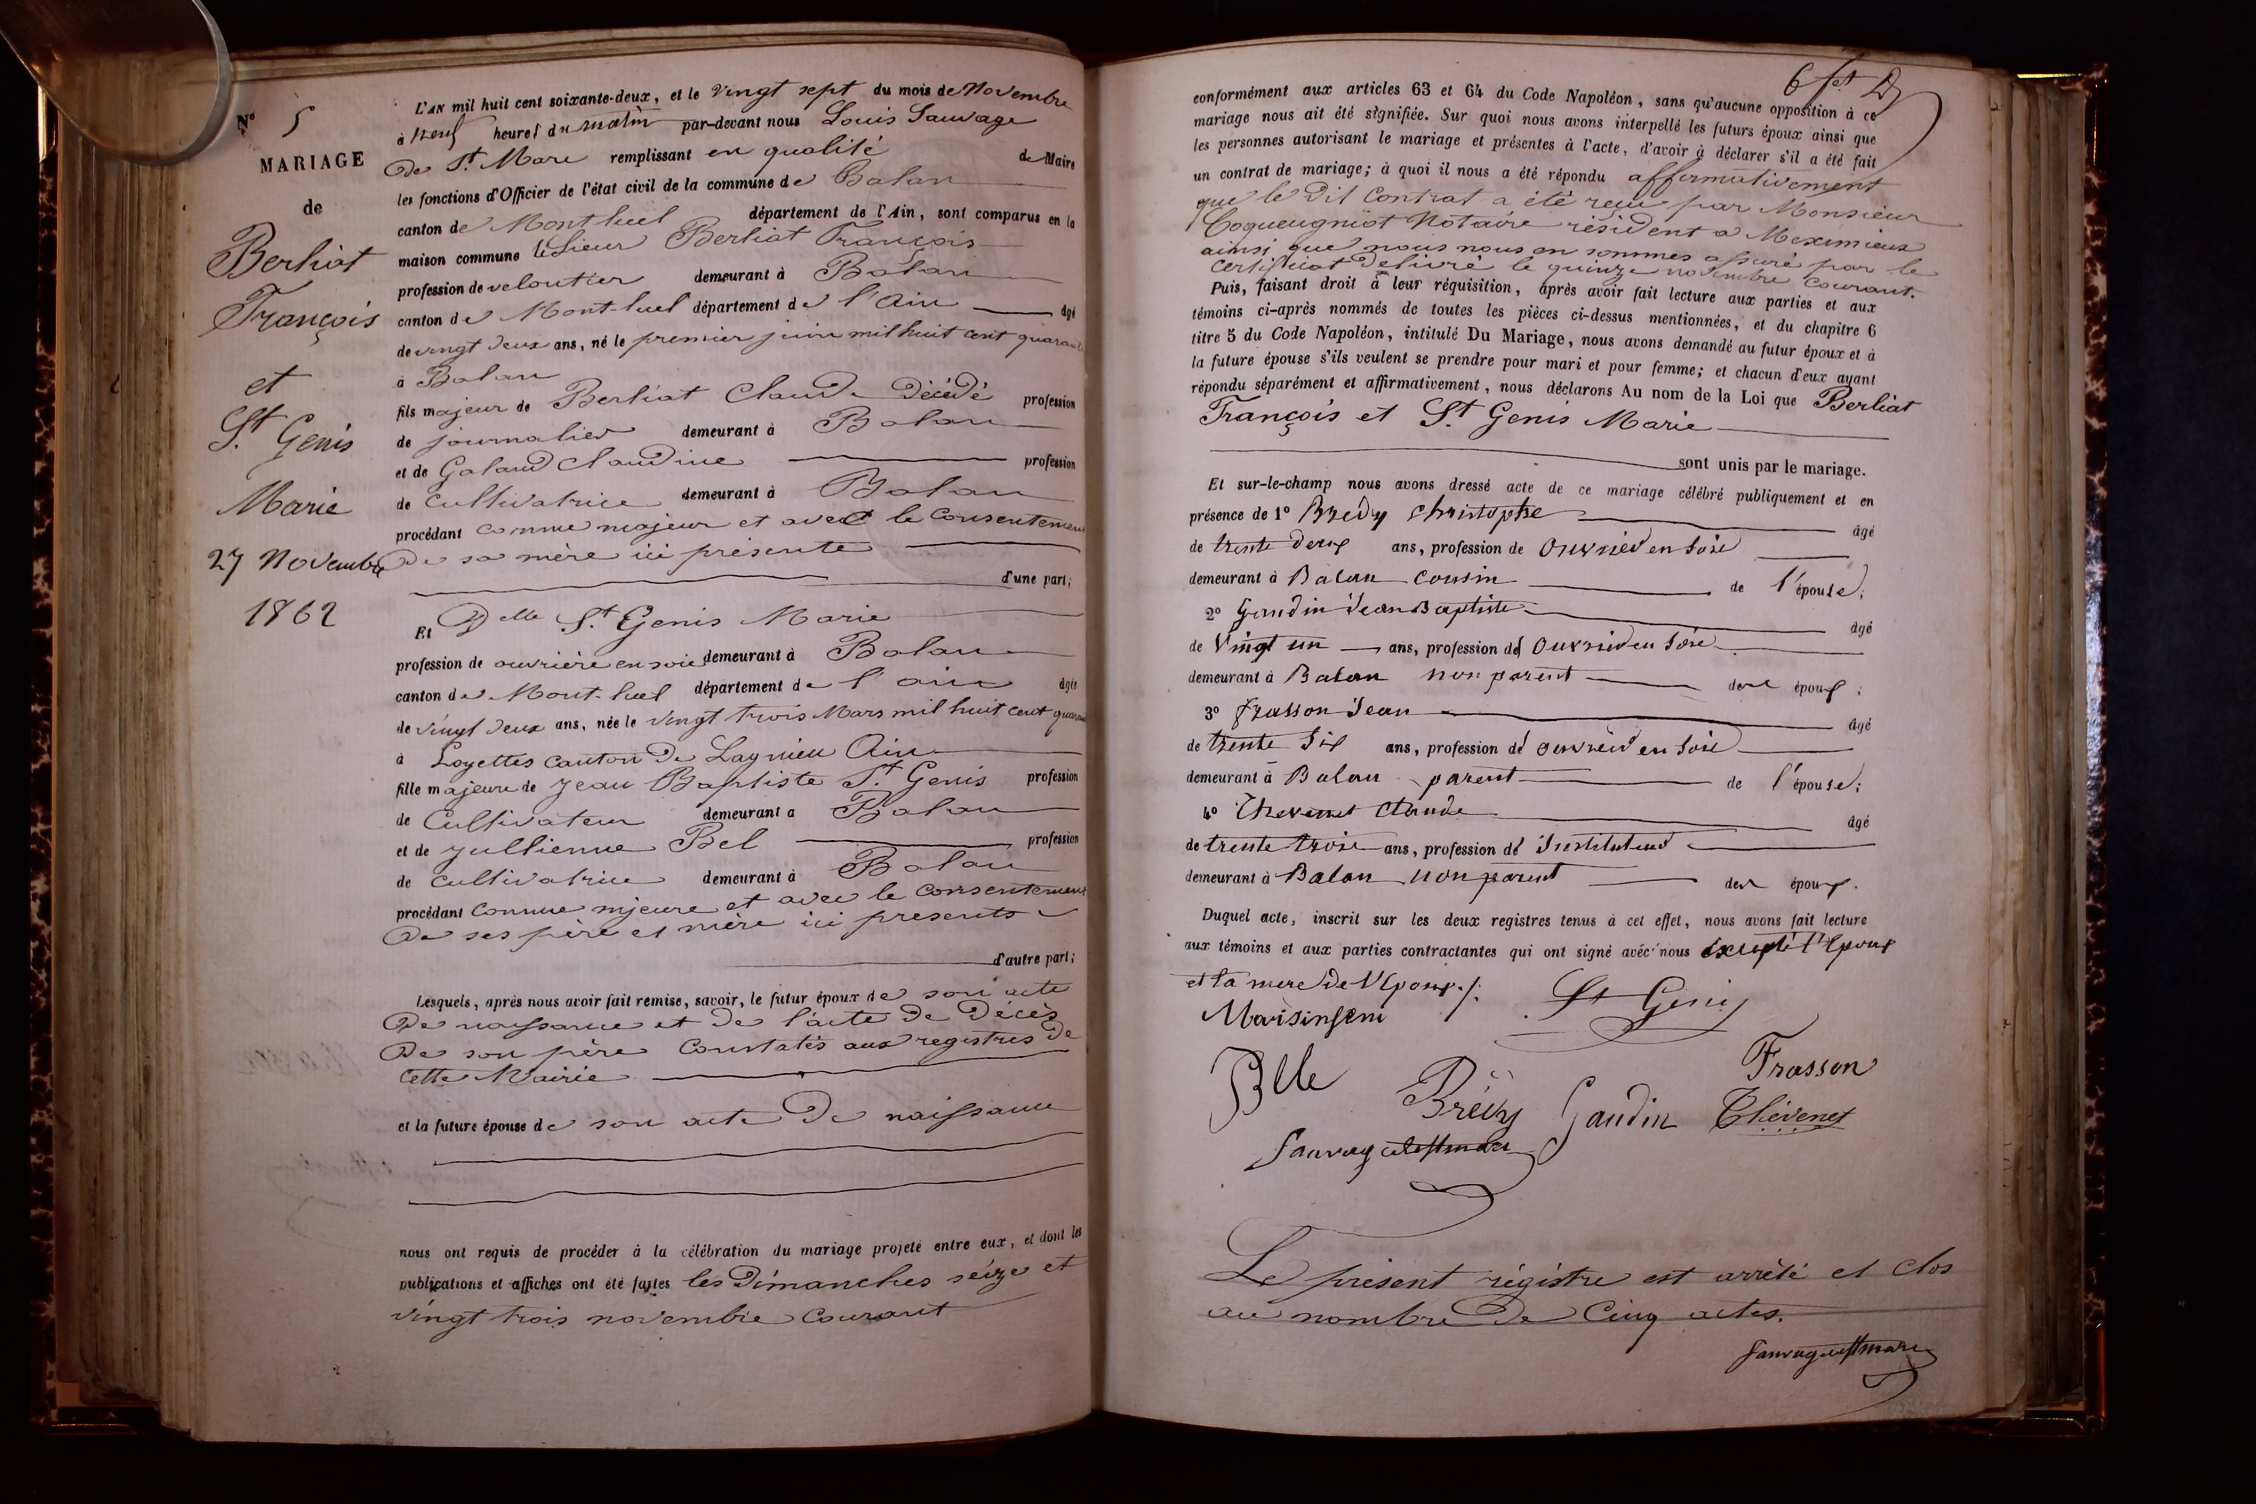 N° 5
MARIAGE
de
Berliat
François
et
St Genis
Marie
27 Novembre
1862
L'AN mil huit cent soixante-deux, et le vingt sept du mois de Novembre
à neuf heures du matin par-devant nous Louis Sauvage
de St. Mare remplissant en qualité de Maire
les fonctions d'Officier de l'état civil de la commune de Balan
canton de Montluel département de l'Ain, sont comparus en la
maison commune le Sieur Berliat François
profession de veloutier demeurant à Balan
canton de Mont-luel département de l'Ain âgé
de vingt deux ans, né le premier juin mil huit cent quarante
à Balan
fils majeur de Berliat Claude Décédé profession
de journalier demeurant à Balan
et de Galand Claudine profession
de Cultivatrice demeurant à Balan
procédant comme majeur et avec le consentement
de sa mère ici présente
d'une part;
Et Delle St. Genis Marie
profession de ouvrière en soie demeurant à Balan
canton de Mont-luel département de l'ain âgée
de vingt deux ans, née le vingt trois Mars mil huit cent quarante
à Loyettes canton de Lagnieu Ain
fille majeure de Jean Baptiste St. Genis profession
de Cultivateur demeurant a Balan
et de Jullienne Bel profession
de cultivatrice demeurant à Balan
procédant comme mjeure et avec le consentement
de ses père et mère ici presents
d'autre part;
Lesquels, après nous avoir fait remise, savoir, le futur époux de son acte
de naissance et de l'acte de Décès
de son père Constatés aux registres de
cette Mairie
et la future épouse de son acte de naissance
nous ont requis de procéder à la célébration du mariage projeté entre eux, et dont les
publications et affiches ont été faites les Dimanches séize et
vingt trois novembre courant
6 fet D
conformément aux articles 63 et 64 du Code Napoléon, sans qu'aucune opposition à ce
mariage nous ait été signifiée. Sur quoi nous avons interpellé les futurs époux ainsi que
les personnes autorisant le mariage et présentes à l'acte, d'avoir à déclarer s'il a été fait
un contrat de mariage; à quoi il nous a été répondu affirmativement
que le dit Contrat a été reçu par Monsieur
Coqueugniot Notaire résident a Meximieux
ainsi que nous nous en sommes assuré par le
certificat delivré le quinze novembre courant.
Puis, faisant droit à leur réquisition, après avoir fait lecture aux parties et aux
témoins ci-après nommés de toutes les pièces ci-dessus mentionnées, et du chapitre 6
titre 5 du Code Napoléon, intitulé Du Mariage, nous avons demandé au futur époux et à
la future épouse s'ils veulent se prendre pour mari et pour femme; et chacun d'eux ayant
répondu séparément et affirmativement, nous déclarons Au nom de la Loi que Berliat
François et St. Genis Marie
sont unis par le mariage.
Et sur-le-champ nous avons dressé acte de ce mariage célébré publiquement et en
présence de 1° Bredy Christophe âgé
de trente deux ans, profession de ouvrier en soie
demeurant à Balan cousin de l'épouse;
2° Gaudin Jean Baptiste âgé
de Vingt un ans, profession de ouvrier en soie
demeurant à Balan non parent des époux;
3° Frasson Jean âgé
de trente six ans, profession de ouvrier en soie
demeurant à Balan parent de l'épouse;
4° Thevenet Claude âgé
de trente trois ans, profession de Instituteur
demeurant à Balan non parent des époux.
Duquel acte, inscrit sur les deux registres tenus à cet effet, nous avons fait lecture
aux témoins et aux parties contractantes qui ont signé avec nous excepté l'Epoux
et la mere de l'Epoux./.
St Geniş
Frasson
Bréüy Gaudin Thévenet
Le présent régistre est arrêté et clos
au nombre de Cinq actes.